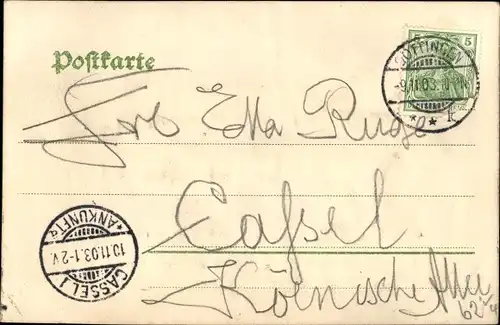 Postkarte
5
GÖTTINGEN
-9.11.03.
* * k
Ella Ruge
Cassel.
Kölnische Allee
62
CASSEL 1
10.11.03.1-2V.
*ANKUNFT*